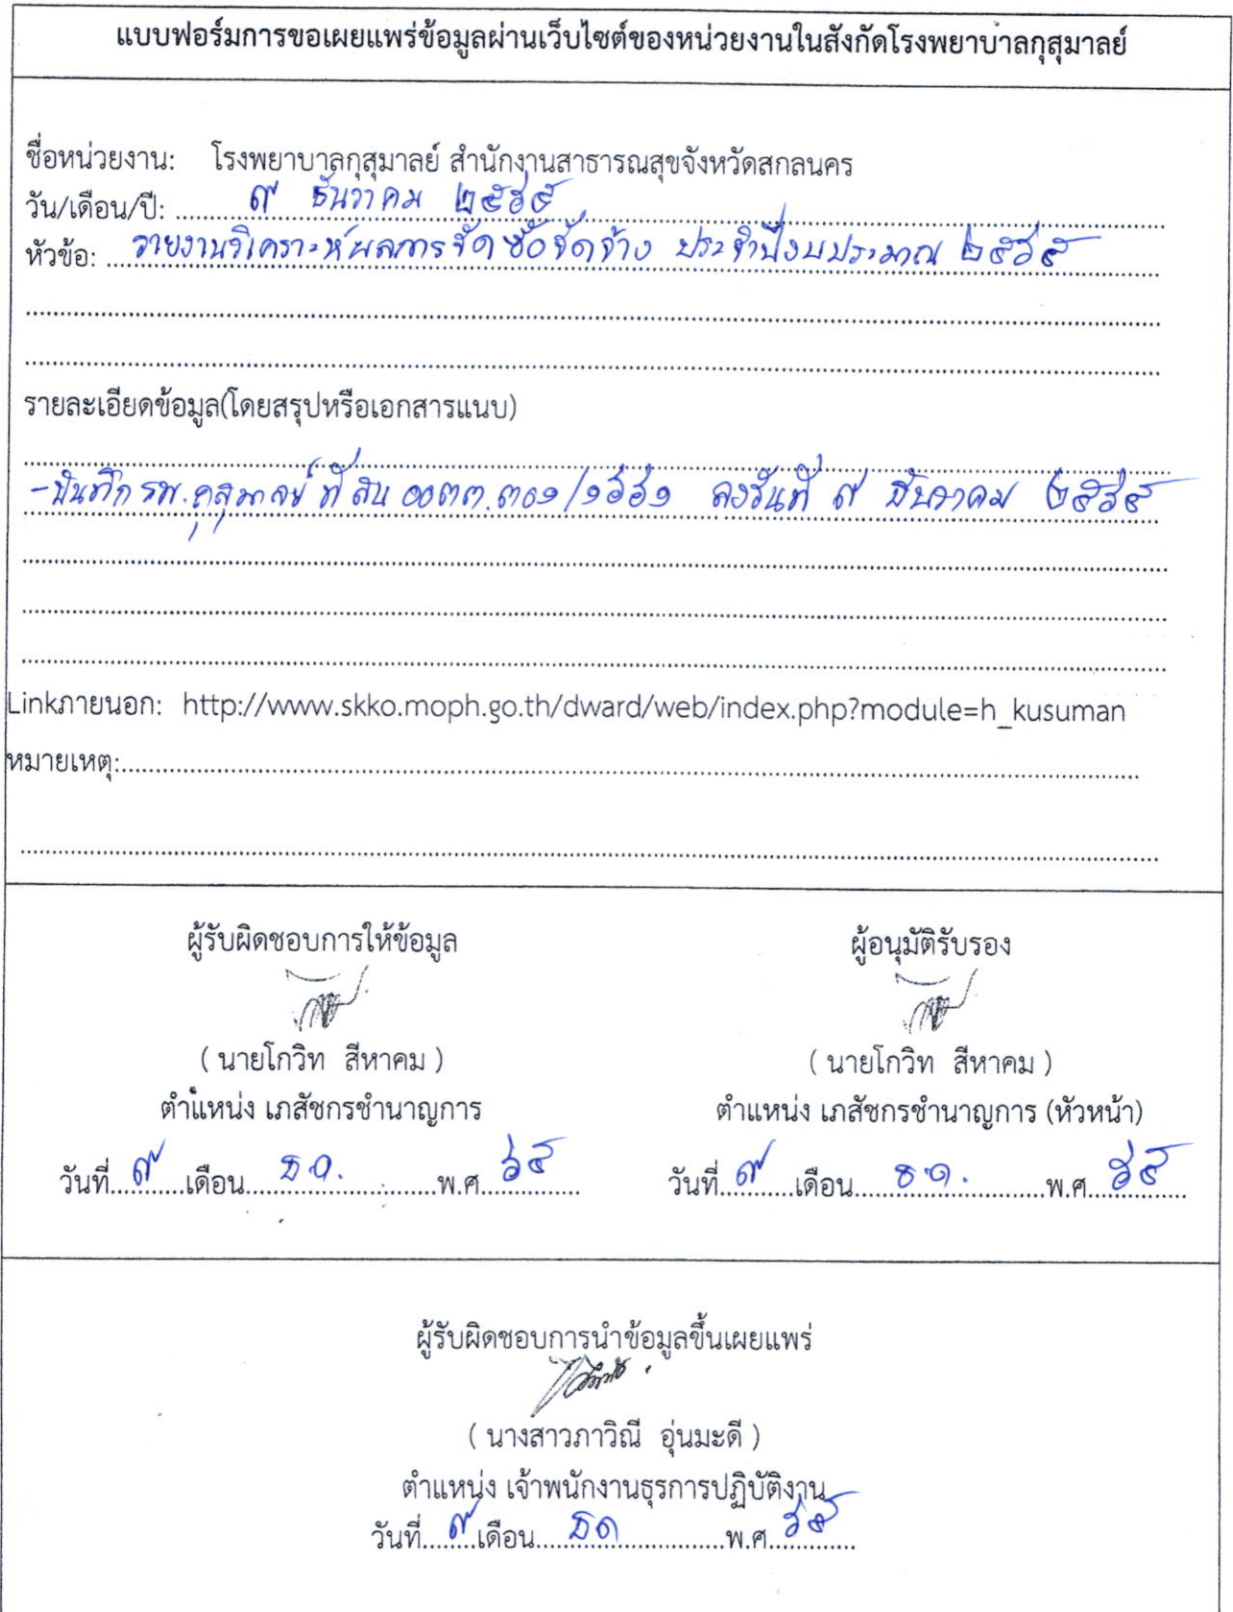 แบบฟอร์มการขอเผยแพร่ข้อมูลผ่านเว็บไซต์ของหน่วยงานในสังกัดโรงพยาบาลกุสุมาลย์
ชื่อหน่วยงาน: โรงพยาบาลกุสุมาลย์ สำนักงานสาธารณสุขจังหวัดสกลนคร
วัน/เดือน/ปี: ๙ ธันวาคม ๒๕๖๕
หัวข้อ: รายงานวิเคราะห์ผลการจัดซื้อจัดจ้าง ประจำปีงบประมาณ ๒๕๖๕
รายละเอียดข้อมูล(โดยสรุปหรือเอกสารแนบ)
-บันทึก รพ.กุสุมาลย์ ที่ สน ๐๐๓๓.๓๐๑/ ลงวันที่ ๙ ธันวาคม ๒๕๖๕
Linkภายนอก: http://www.skko.moph.go.th/dward/web/index.php?module=h_kusuman
หมายเหตุ:
ผู้รับผิดชอบการให้ข้อมูล
( นายโกวิท สีหาคม )
ตำแหน่ง เภสัชกรชำนาญการ
วันที่ ๙ เดือน ธ.ค. พ.ศ. ๖๕
ผู้อนุมัติรับรอง
( นายโกวิท สีหาคม )
ตำแหน่ง เภสัชกรชำนาญการ (หัวหน้า)
วันที่ ๙ เดือน ธ.ค. พ.ศ. ๖๕
ผู้รับผิดชอบการนำข้อมูลขึ้นเผยแพร่
( นางสาวภาวิณี อุ่นมะดี )
ตำแหน่ง เจ้าพนักงานธุรการปฏิบัติงาน
วันที่ ๙ เดือน ธค พ.ศ. ๖๕